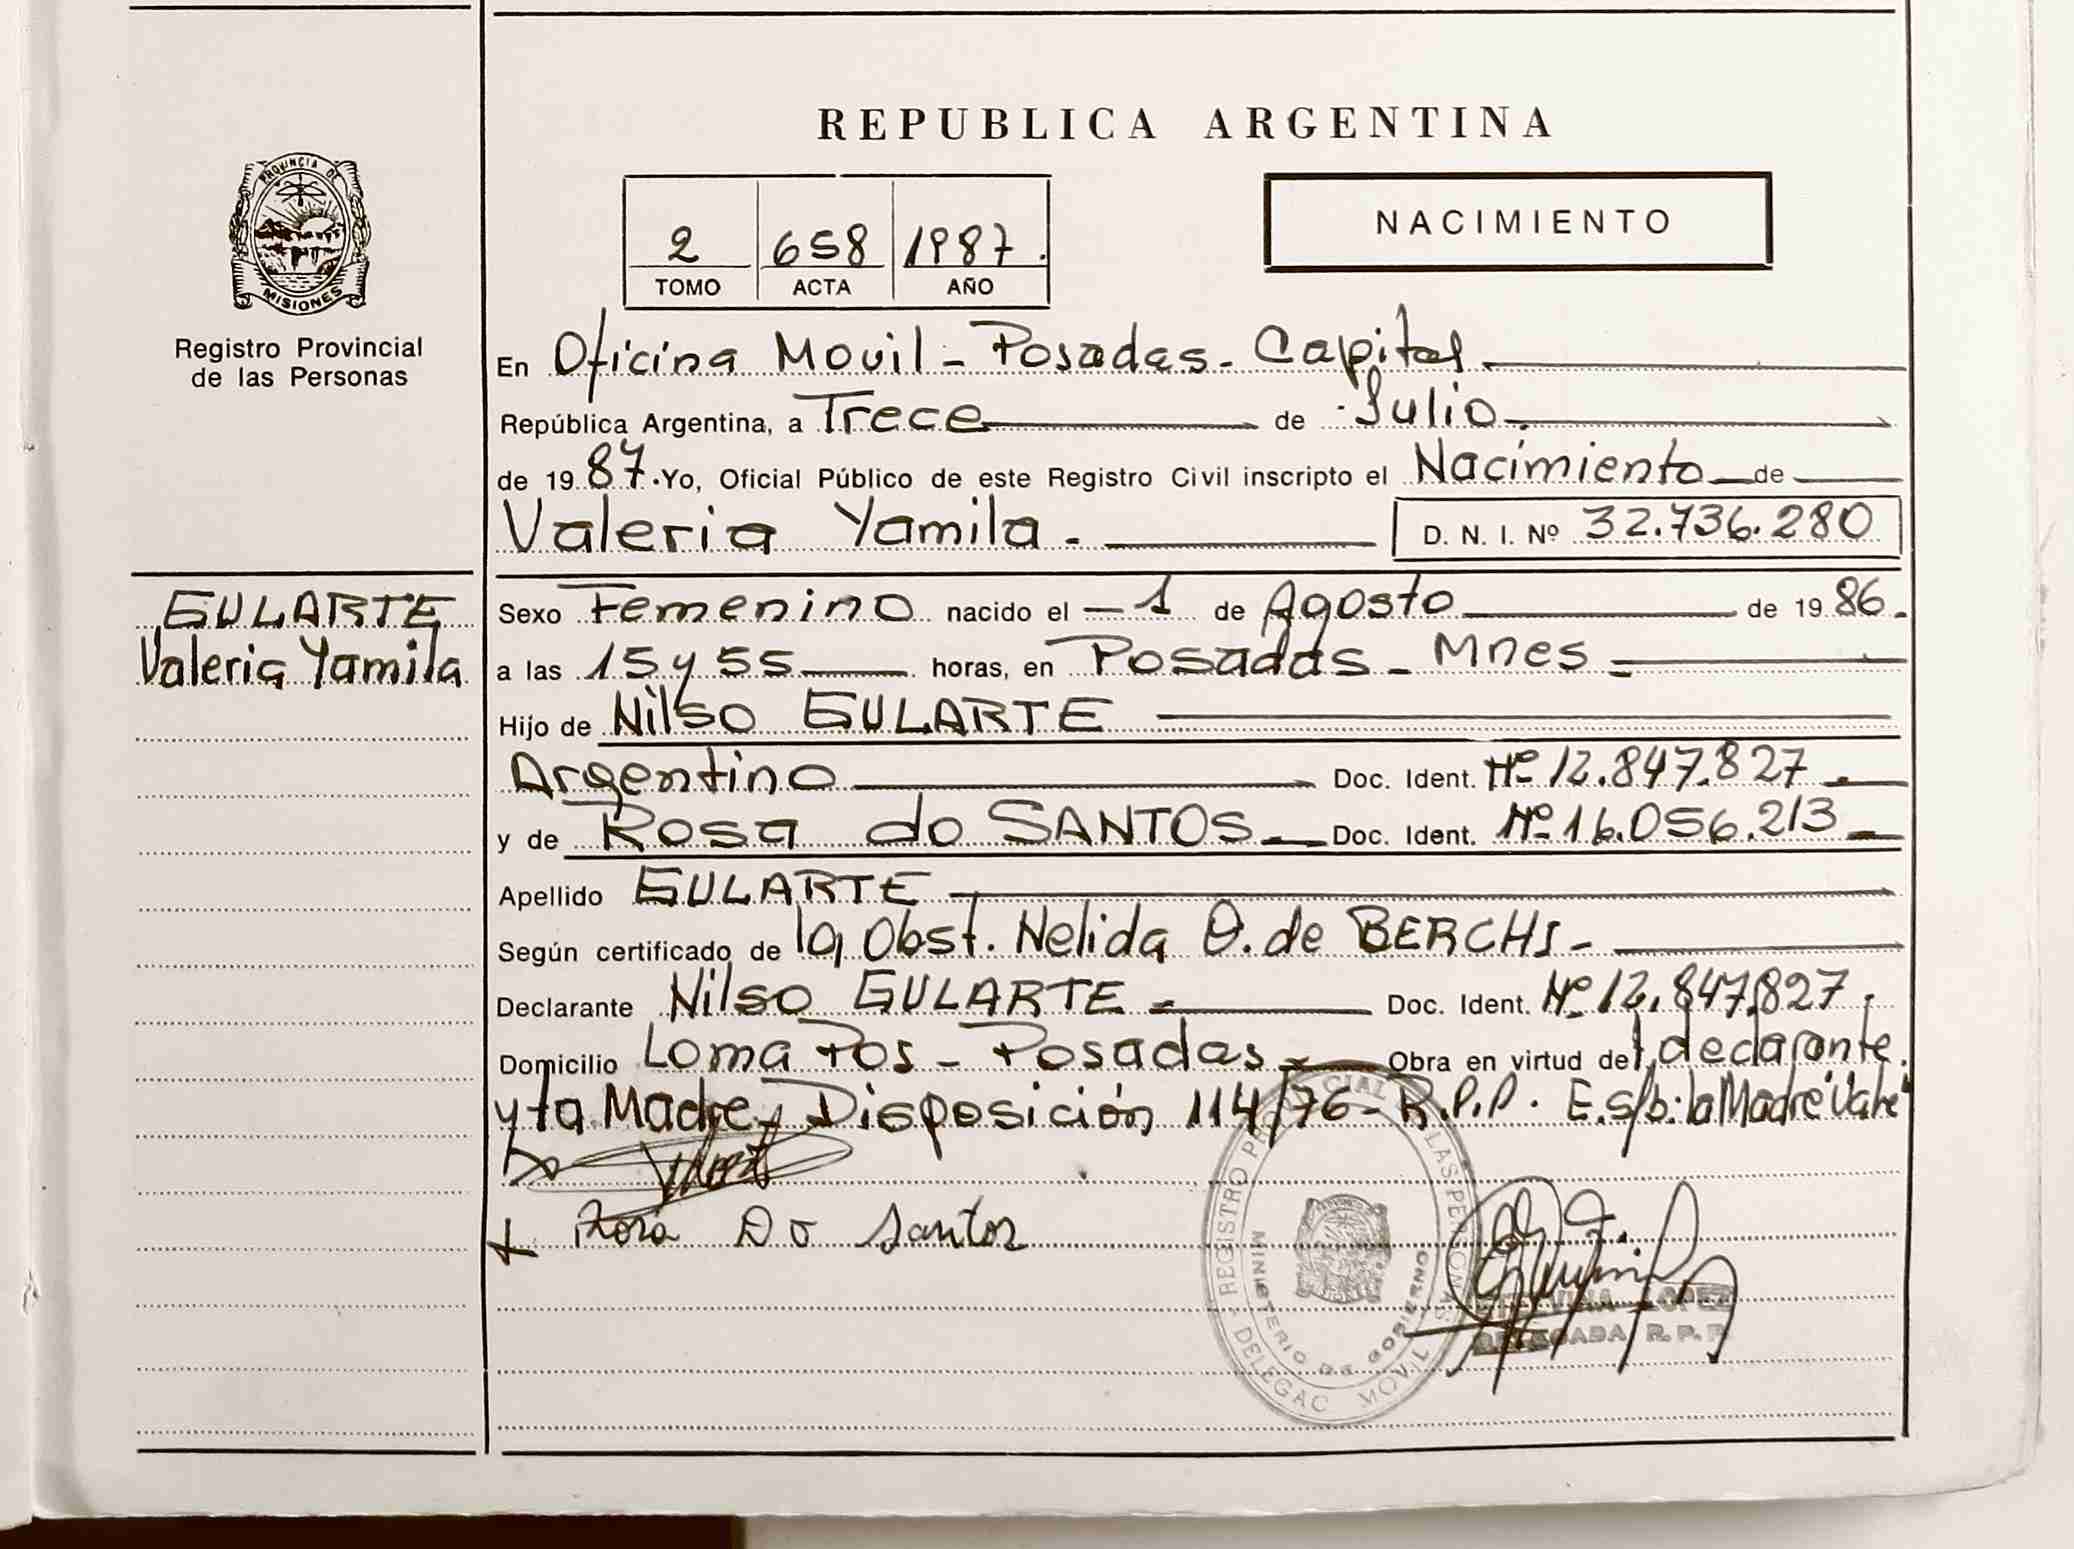 REPUBLICA ARGENTINA
PROVINCIA DE
MISIONES
Registro Provincial
de las Personas
2 658 1987.
TOMO ACTA AÑO
NACIMIENTO
En Oficina Movil - Posadas - Capital
República Argentina, a Trece de Julio
de 1987. Yo, Oficial Público de este Registro Civil inscripto el Nacimiento de
Valeria Yamila. D. N. I. Nº 32.736.280
GULARTE
Valeria Yamila
Sexo Femenino nacido el 1 de Agosto de 1986.
a las 15 y 55 horas, en Posadas - Mnes
Hijo de Nilso GULARTE
Argentino Doc. Ident. Nº 12.847.827
y de Rosa do SANTOS Doc. Ident. Nº 16.056.213
Apellido GULARTE
Según certificado de la Obst. Nelida O. de BERCHI
Declarante Nilso GULARTE Doc. Ident. Nº 12.847.827.
Domicilio Loma Pos - Posadas Obra en virtud del declarante
y la Madre y Disposición 114/76 - R.P.P. E. s/b: la Madre "Vale"
Rosa Do Santos
REGISTRO PROVINCIAL LAS PERSONAS
MINISTERIO DE GOBIERNO
DELEGAC MOVIL
LOPEZ
DELEGADA R. P. P.